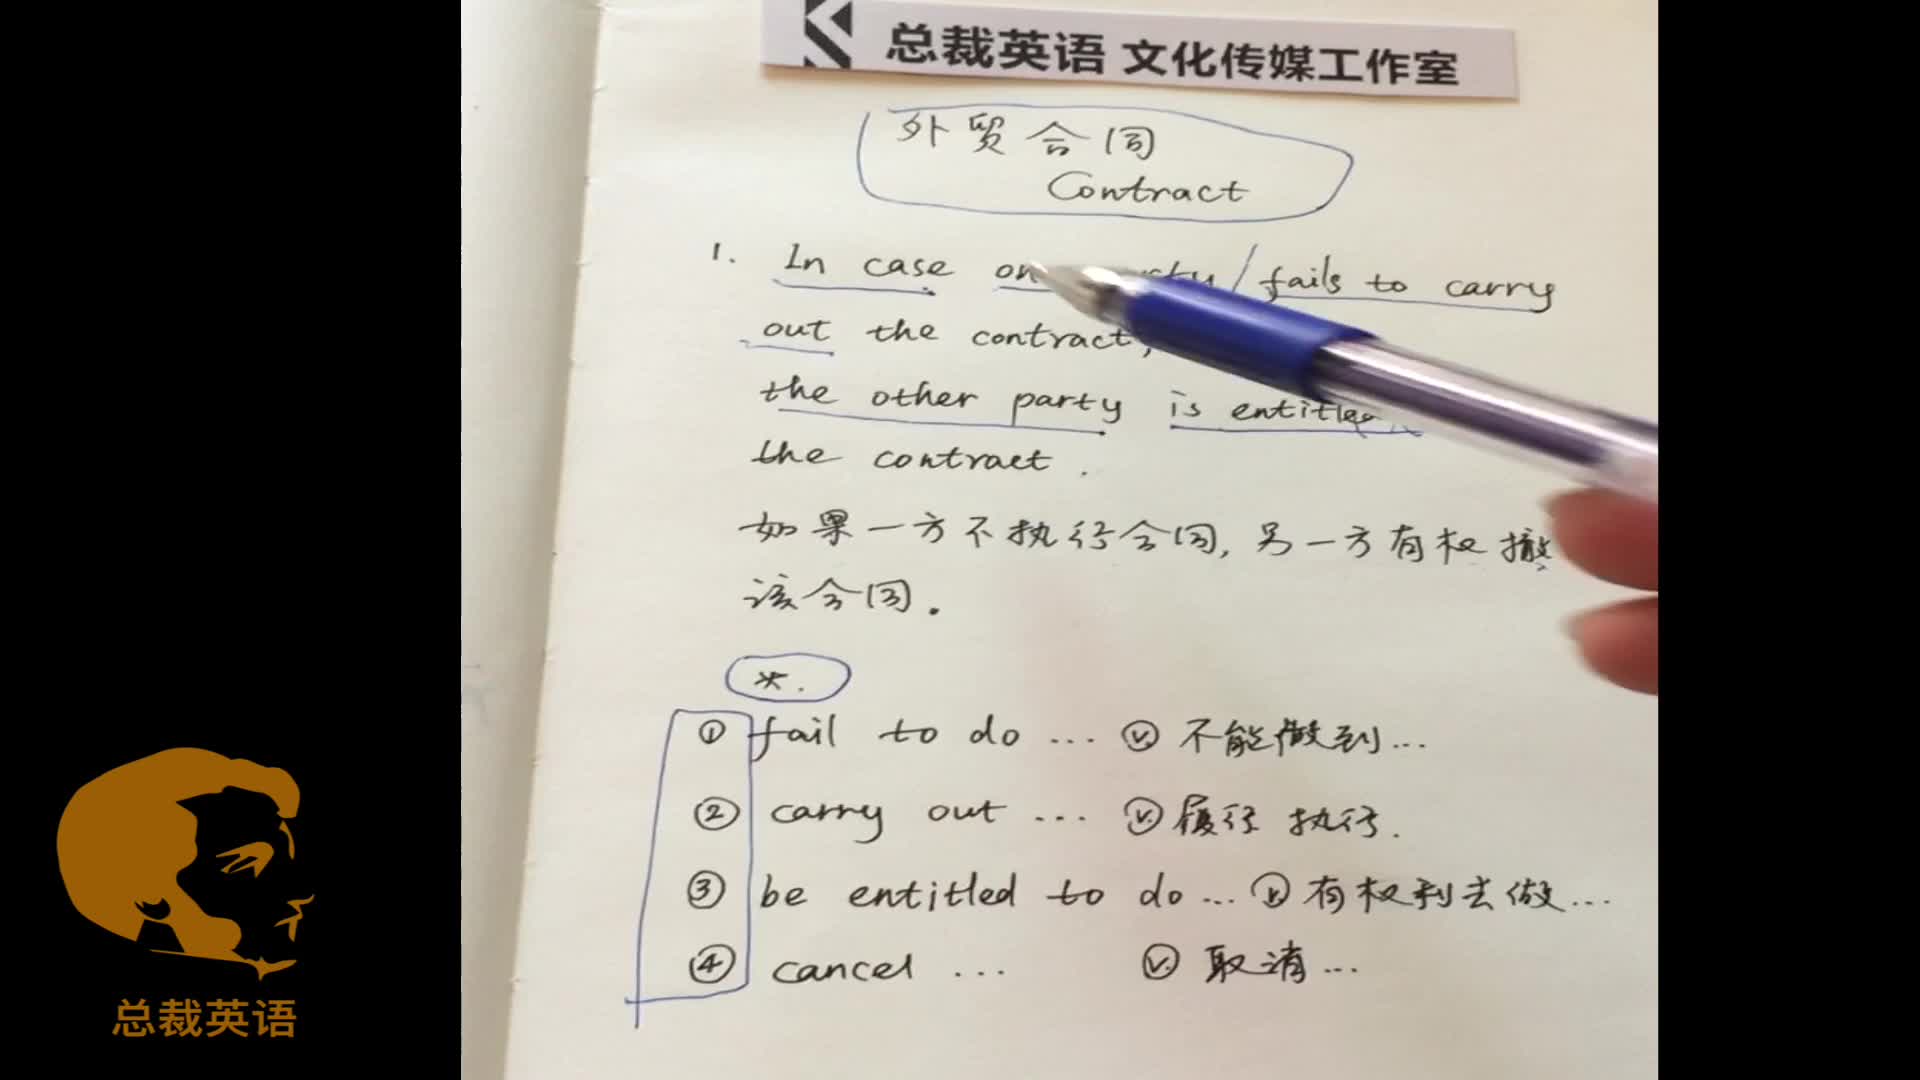 总裁英语 文化传媒工作室
外贸合同
Contract
1. In case / fails to carry
out the contract,
the other party is entitled
the contract.
如果一方不执行合同, 另一方有权撤
该合同.
*.
① fail to do ... v. 不能做到...
② carry out ... v. 履行 执行.
③ be entitled to do ... v. 有权利去做...
④ cancel ... v. 取消...
总裁英语